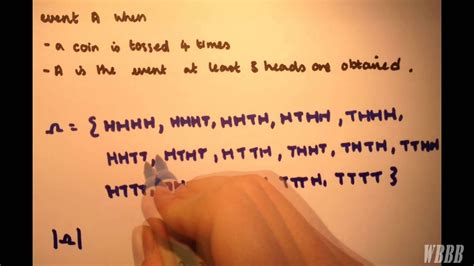 event A when
- a coin is tossed 4 times
- A is the event at least 3 heads are obtained.
Ω = { HHHH, HHHT, HHTH, HTHH, THHH,
HHTT, HTHT, HTTH, THHT, THTH, TTHH
HTTT, TTTH, TTTT }
|Ω|
WBBB